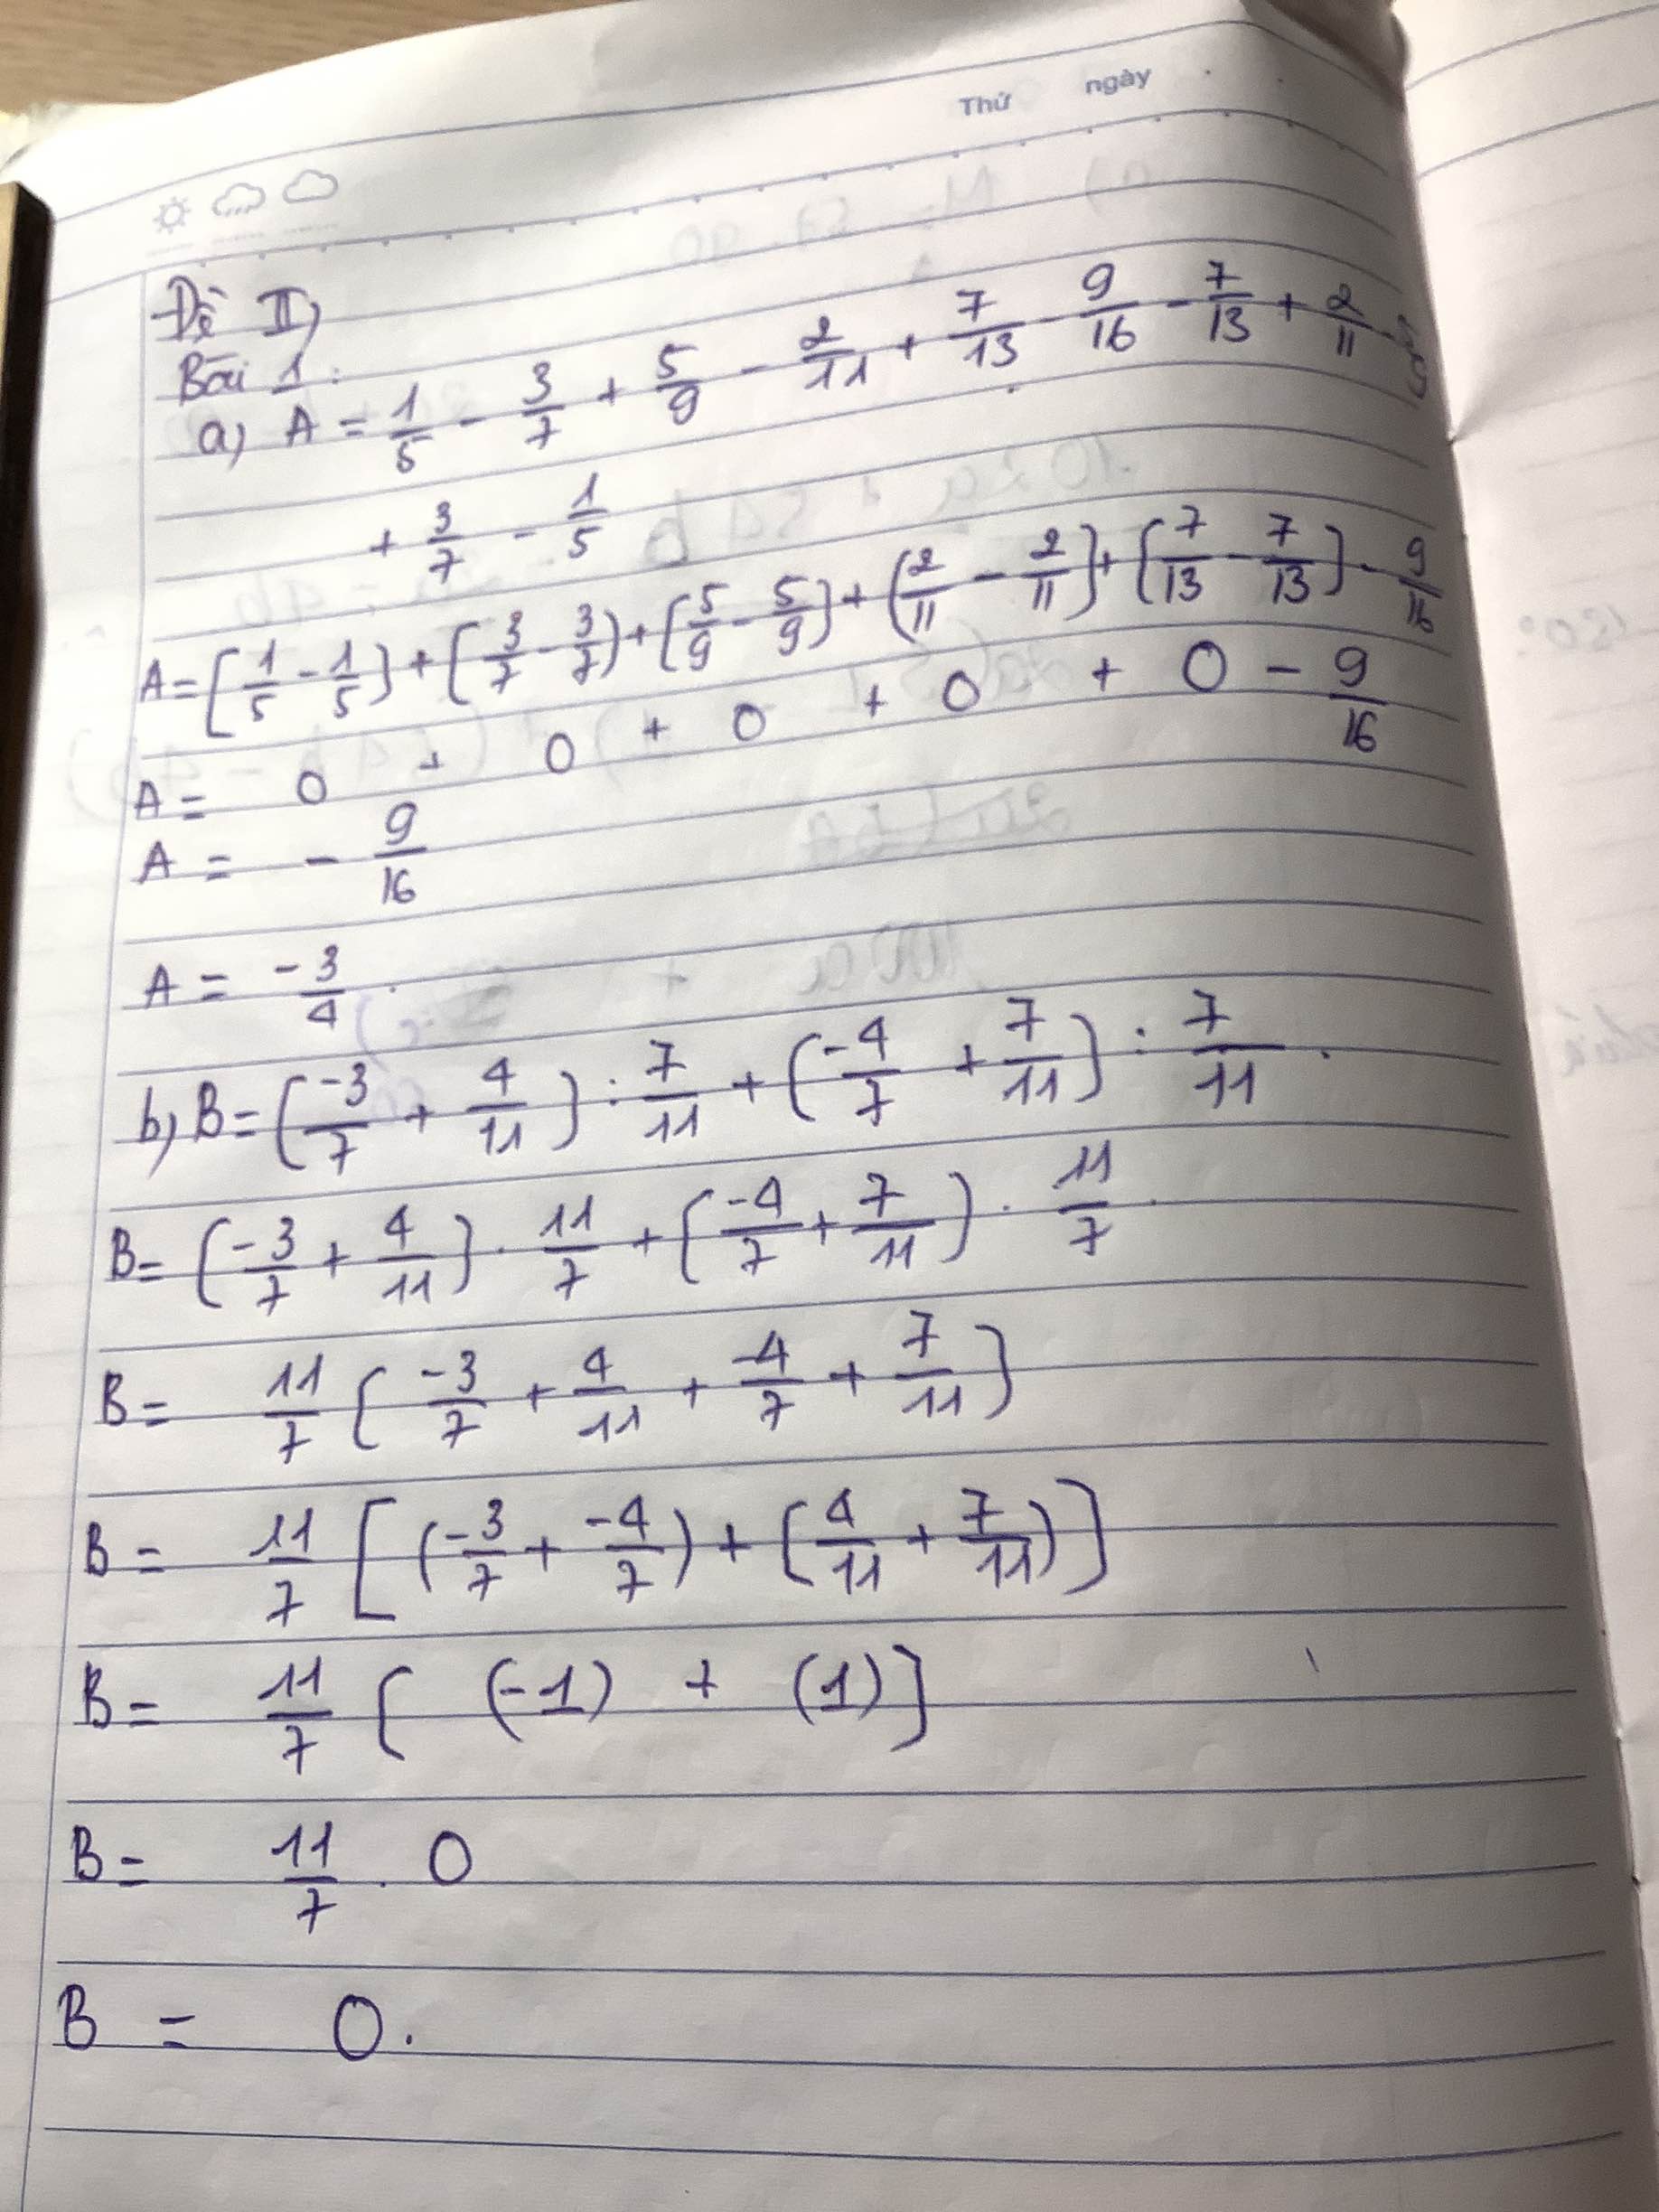 Thứ ngày
Đề II)
Bài 1:
a) A = 1/5 - 3/7 + 5/9 - 2/11 + 7/13 - 9/16 - 7/13 + 2/11 - 5/9
+ 3/7 - 1/5
A = (1/5 - 1/5) + (3/7 - 3/7) + (5/9 - 5/9) + (2/11 - 2/11) + (7/13 - 7/13) - 9/16
A = 0 + 0 + 0 + 0 + 0 - 9/16
A = - 9/16
A = -3/4.
b) B = (-3/7 + 4/11) : 7/11 + (-4/7 + 7/11) : 7/11.
B = (-3/7 + 4/11) . 11/7 + (-4/7 + 7/11) . 11/7
B = 11/7 (-3/7 + 4/11 + -4/7 + 7/11)
B = 11/7 [(-3/7 + -4/7) + (4/11 + 7/11)]
B = 11/7 [(-1) + (1)]
B = 11/7 . 0
B = 0.